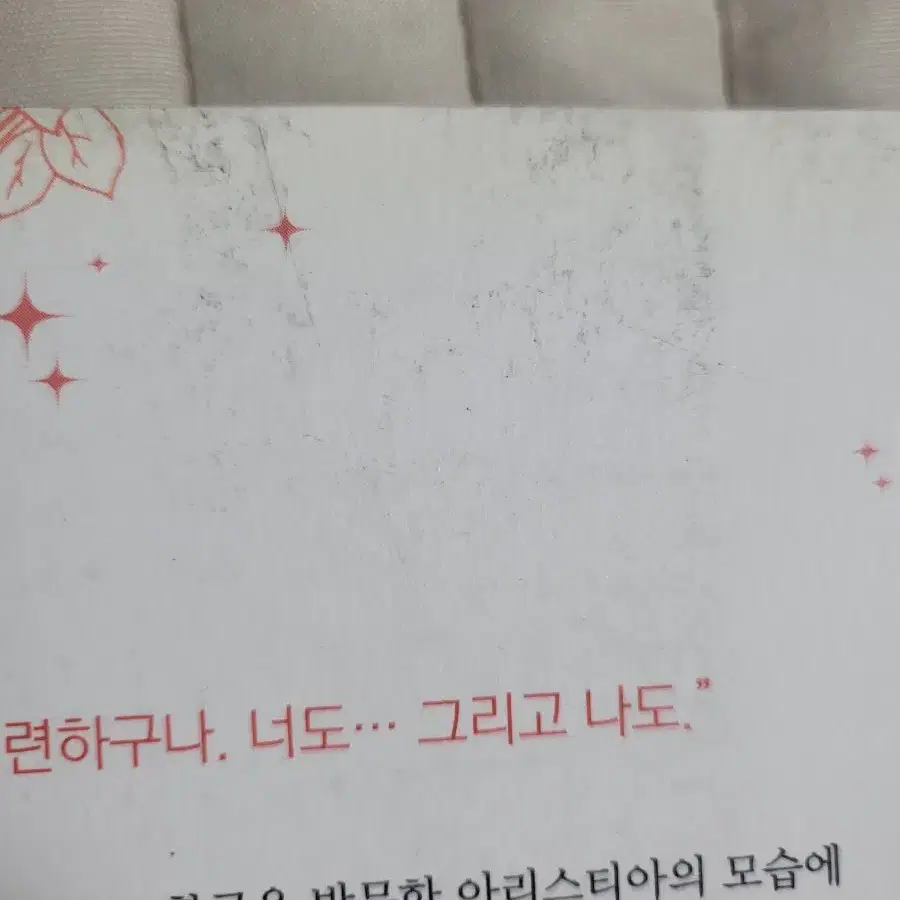 련하구나. 너도… 그리고 나도.”
방문한 아리스티아의 모습에